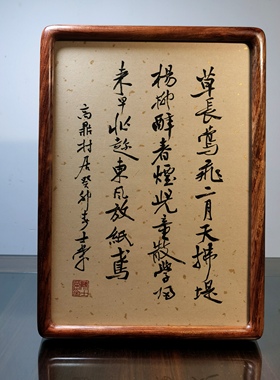 草長鶯飛二月天拂堤
楊柳醉春煙兒童散學歸
來早忙趁東風放紙鳶
高鼎村居癸卯